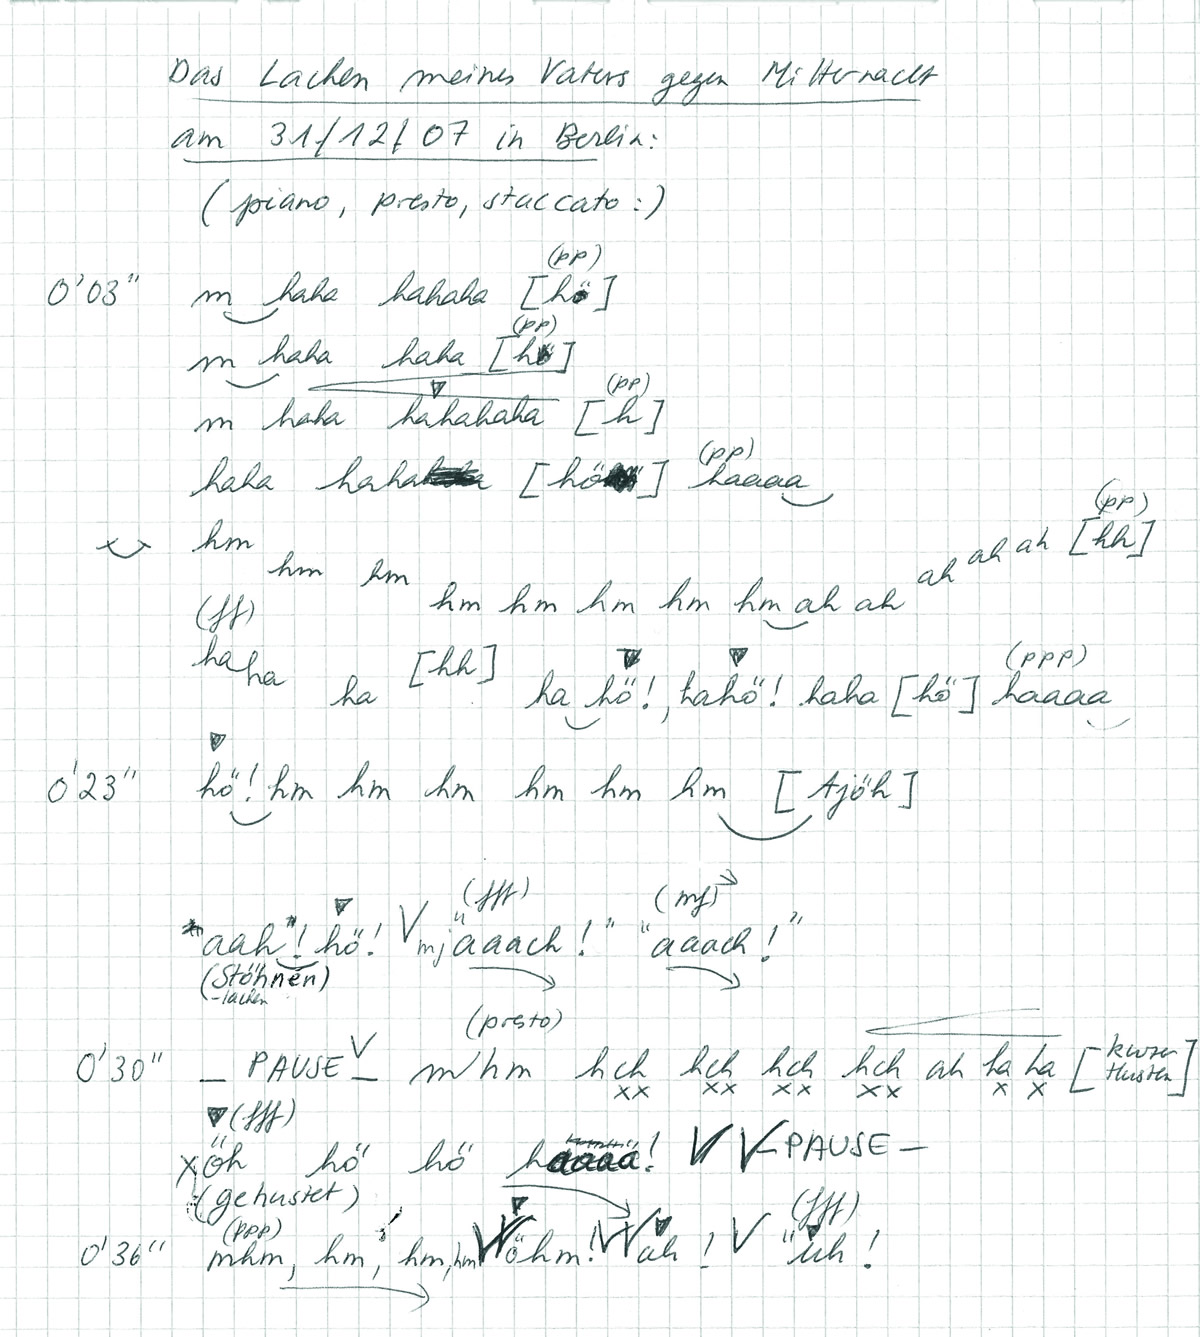 Das Lachen meines Vaters gegen Mitternacht
am 31/12/07 in Berlin:
(piano, presto, staccato:)
(pp)
0'03" m haha hahaha [hö]
(pp)
m haha haha [hö]
(pp)
m haha hahahaha [h]
(pp)
haha haha [hö] haaaa
(pp)
hm hm hm hm hm hm hm hm ah ah ah ah ah [hh]
(ff)
(ppp)
ha ha ha [hh] ha hö!, hahö! haha [hö] haaaa
0'23" hö! hm hm hm hm hm hm [Ajöh]
(fff) (mf)
"aah"! hö! V mj "aaach!" "aaach!"
(Stöhnen)
-lachen
(presto)
0'30" – PAUSE – m'hm hch hch hch hch ah ha ha [kurzer Husten]
xx xx xx xx x x
(fff)
x öh hö hö haaaa! V V – PAUSE –
(gehustet)
(ppp) (fff)
0'36" mhm, hm, hm, hm öhm! ah! V "uh!